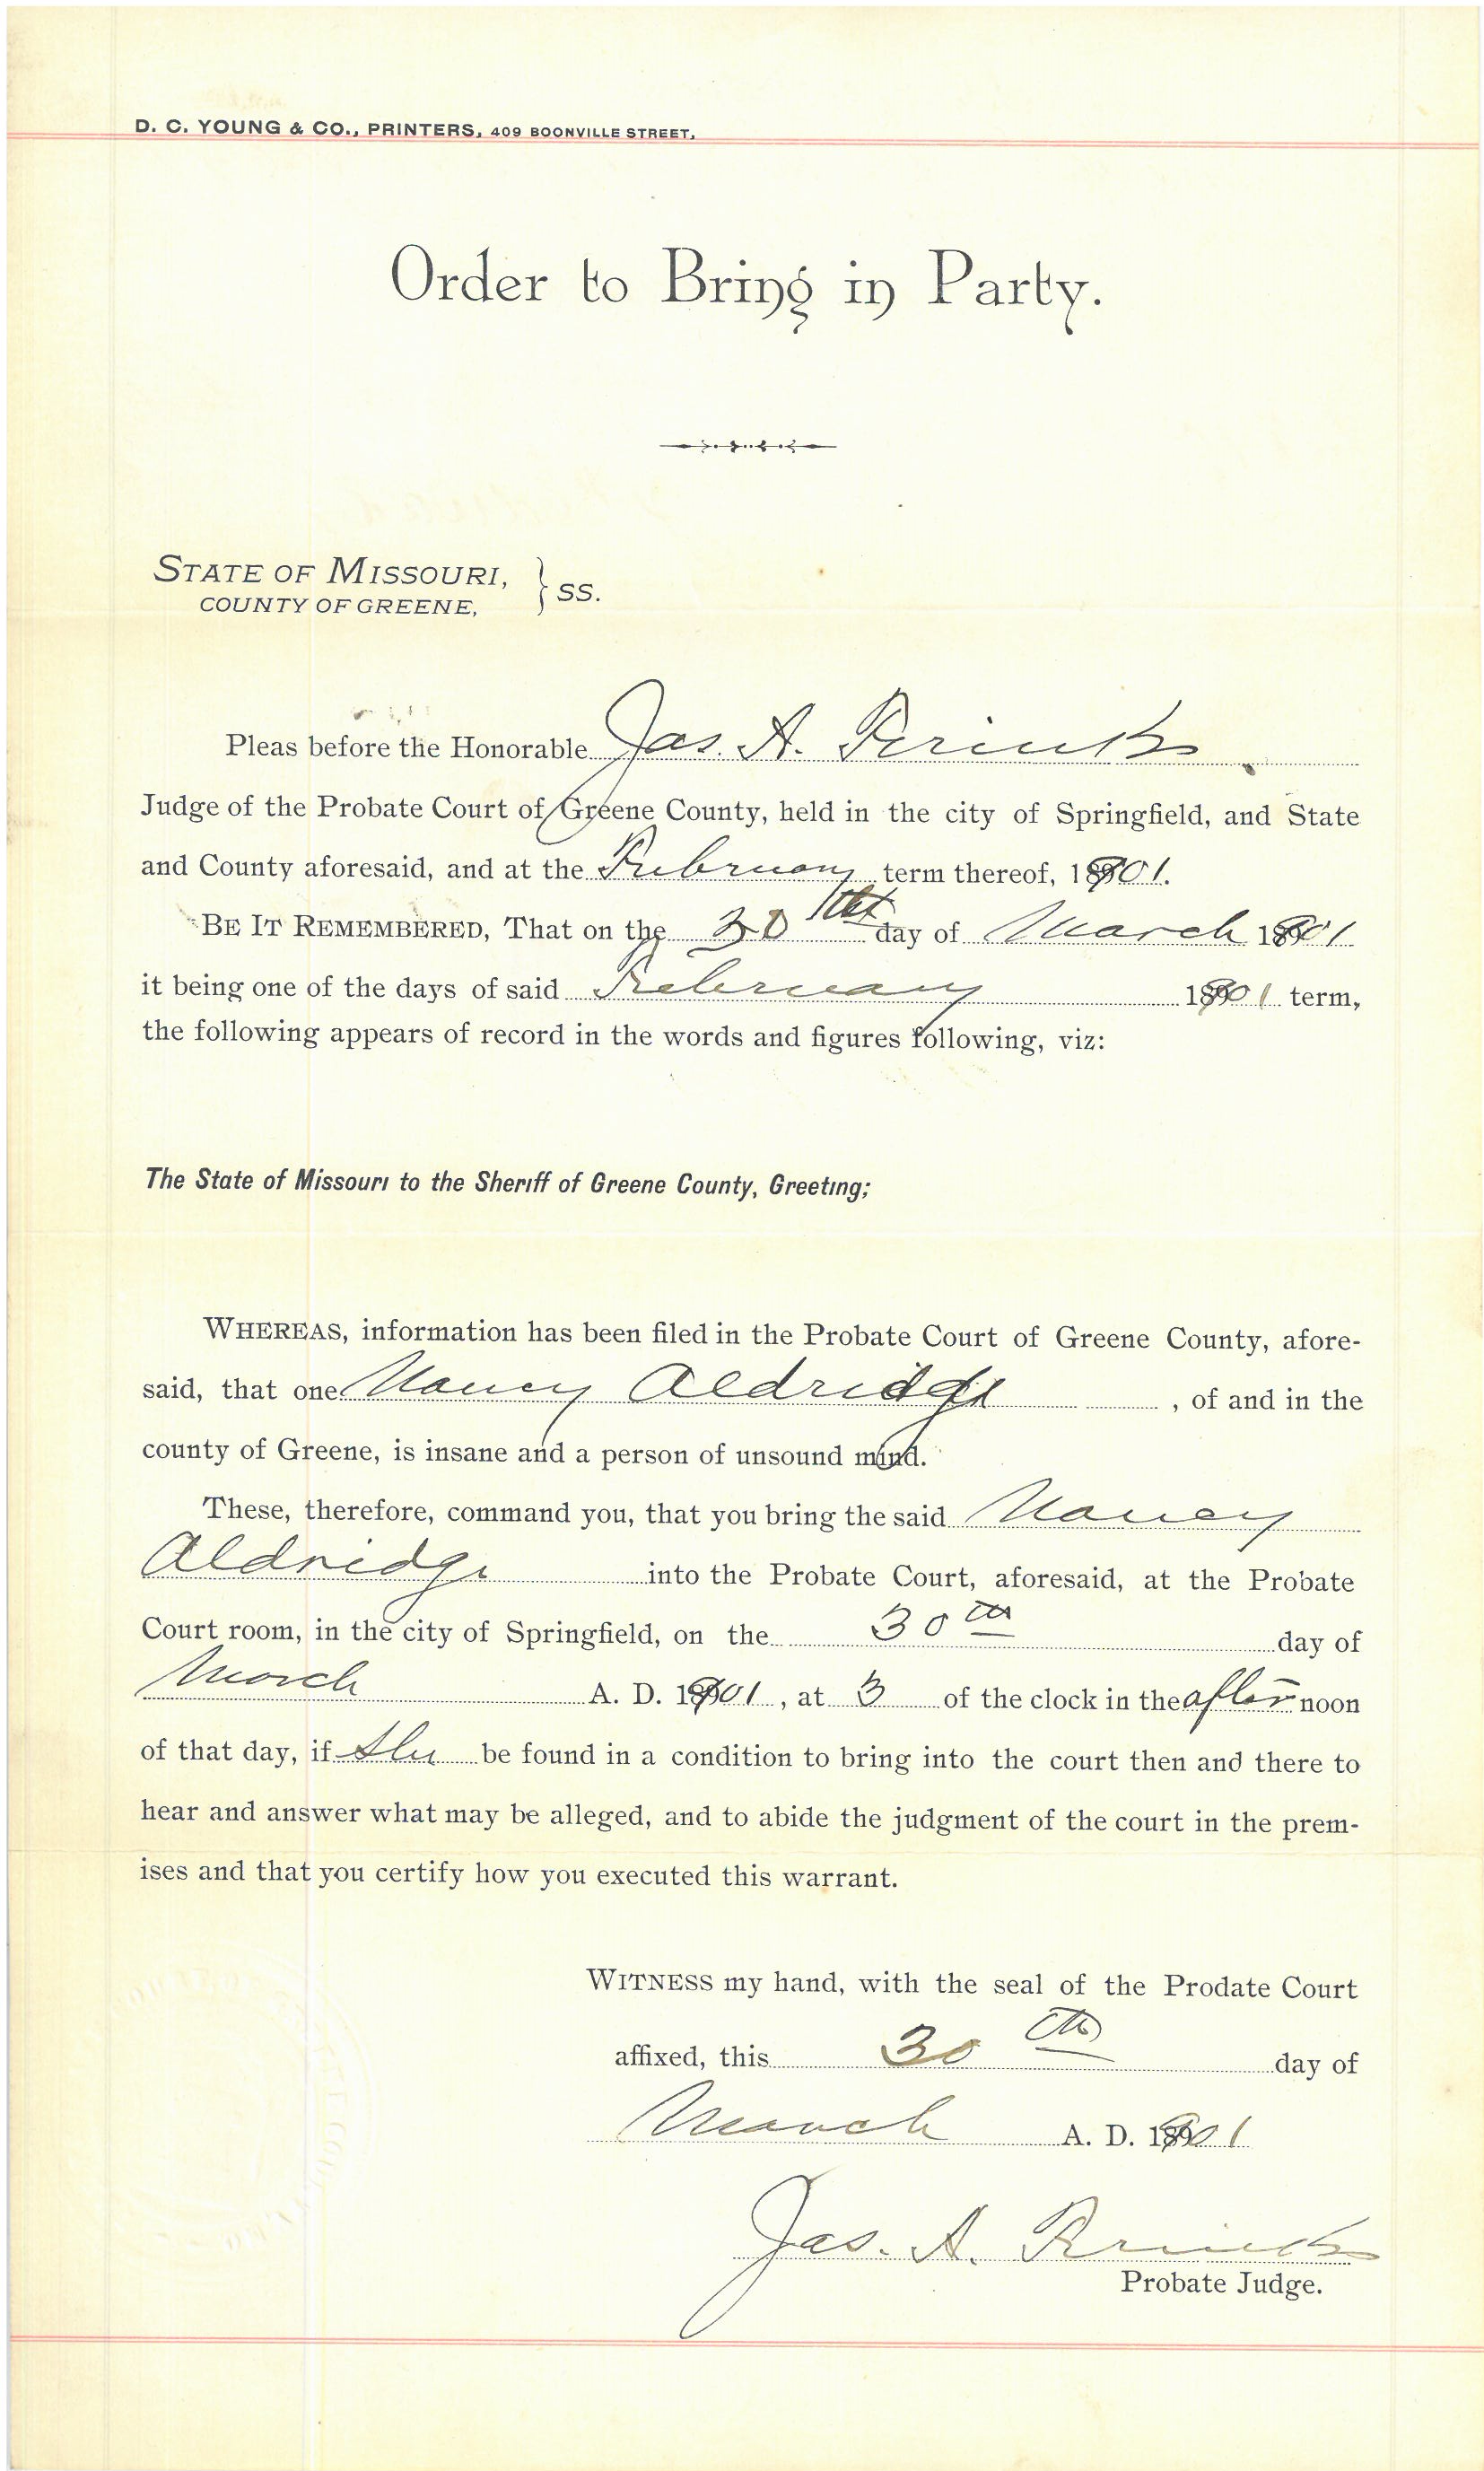 D. C. YOUNG & CO., PRINTERS, 409 BOONVILLE STREET,
Order to Bring in Party.
STATE OF MISSOURI,
COUNTY OF GREENE, } SS.
Pleas before the Honorable Jas. A.
Judge of the Probate Court of Greene County, held in the city of Springfield, and State
and County aforesaid, and at the February term thereof, 1901.
BE IT REMEMBERED, That on the 30 day of March 1901
it being one of the days of said February 1901 term,
the following appears of record in the words and figures following, viz:
The State of Missouri to the Sheriff of Greene County, Greeting;
WHEREAS, information has been filed in the Probate Court of Greene County, afore-
said, that one Nancy Aldridge , of and in the
county of Greene, is insane and a person of unsound mind.
These, therefore, command you, that you bring the said Nancy
Aldridge into the Probate Court, aforesaid, at the Probate
Court room, in the city of Springfield, on the 30th day of
March A. D. 1901, at 3 of the clock in the after noon
of that day, if she be found in a condition to bring into the court then and there to
hear and answer what may be alleged, and to abide the judgment of the court in the prem-
ises and that you certify how you executed this warrant.
WITNESS my hand, with the seal of the Prodate Court
affixed, this 30th day of
March A. D. 1901
Jas. A.
Probate Judge.